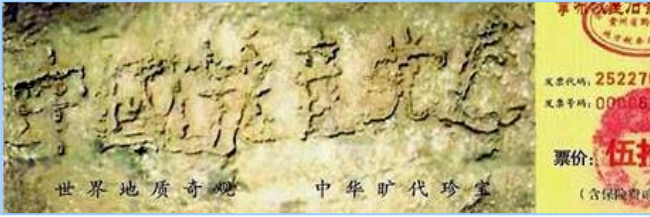 中國共產党亡
世界地质奇观 中华旷代珍宝
贵州省黔
发票代码: 25227
发票号码: 0000
票价: 伍拾
(含保险费